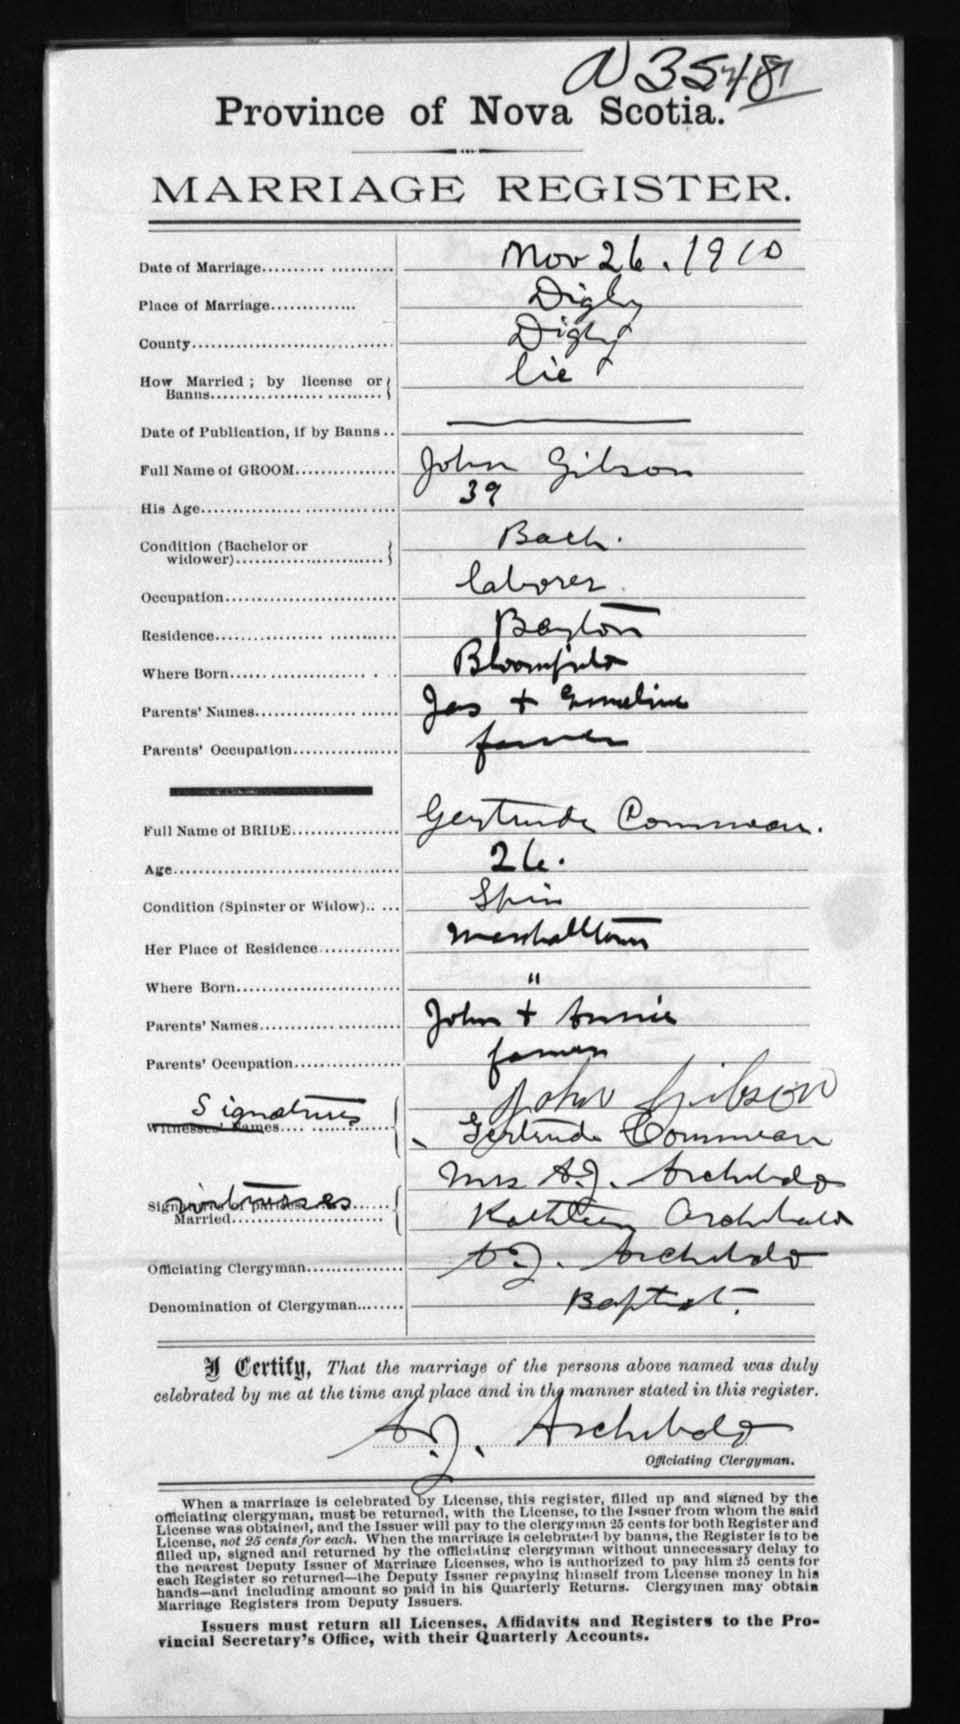 N 3548
Province of Nova Scotia.
MARRIAGE REGISTER.
Date of Marriage.......... ........... Nov 26. 1910
Place of Marriage............. Digby
County.............................. Digby
How Married; by license or Banns.................. ......... Lie
Date of Publication, if by Banns ..
Full Name of GROOM............... John Gilson
His Age............... ............... 39
Condition (Bachelor or widower)...................... Bach.
Occupation......................... laborer
Residence................ ........... 
Where Born...... ................ . . Bloomfield
Parents' Names................ ...... Jas + Emeline
Parents' Occupation............... farmer
Full Name of BRIDE............... Gertrude Commeau.
Age................................... 26.
Condition (Spinster or Widow).. ... Spin
Her Place of Residence........... Marshalltown
Where Born........................ "
Parents' Names...................... John + Annie
Parents' Occupation............... farmer
Signatures
Witnesses' Names.... ............ John Gibson
Gertrude Commeau
Mrs A.J. Archibald
witnesses
Signatures of parties Married...................... Kathleen Archibald
Officiating Clergyman............... A.J. Archibald
Denomination of Clergyman....... Baptist.
I Certify, That the marriage of the persons above named was duly
celebrated by me at the time and place and in the manner stated in this register.
A.J. Archibald
Officiating Clergyman.
When a marriage is celebrated by License, this register, filled up and signed by the
officiating clergyman, must be returned, with the License, to the Issuer from whom the said
License was obtained, and the Issuer will pay to the clergyman 25 cents for both Register and
License, not 25 cents for each. When the marriage is celebrated by banns, the Register is to be
filled up, signed and returned by the officiating clergyman without unnecessary delay to
the nearest Deputy Issuer of Marriage Licenses, who is authorized to pay him 25 cents for
each Register so returned—the Deputy Issuer repaying himself from License money in his
hands—and including amount so paid in his Quarterly Returns. Clergymen may obtain
Marriage Registers from Deputy Issuers.
Issuers must return all Licenses, Affidavits and Registers to the Pro-
vincial Secretary's Office, with their Quarterly Accounts.